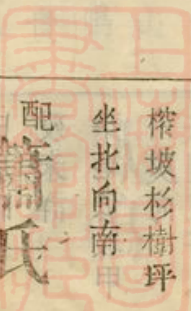 榨坡杉樹坪
坐北向南
配蕭氏